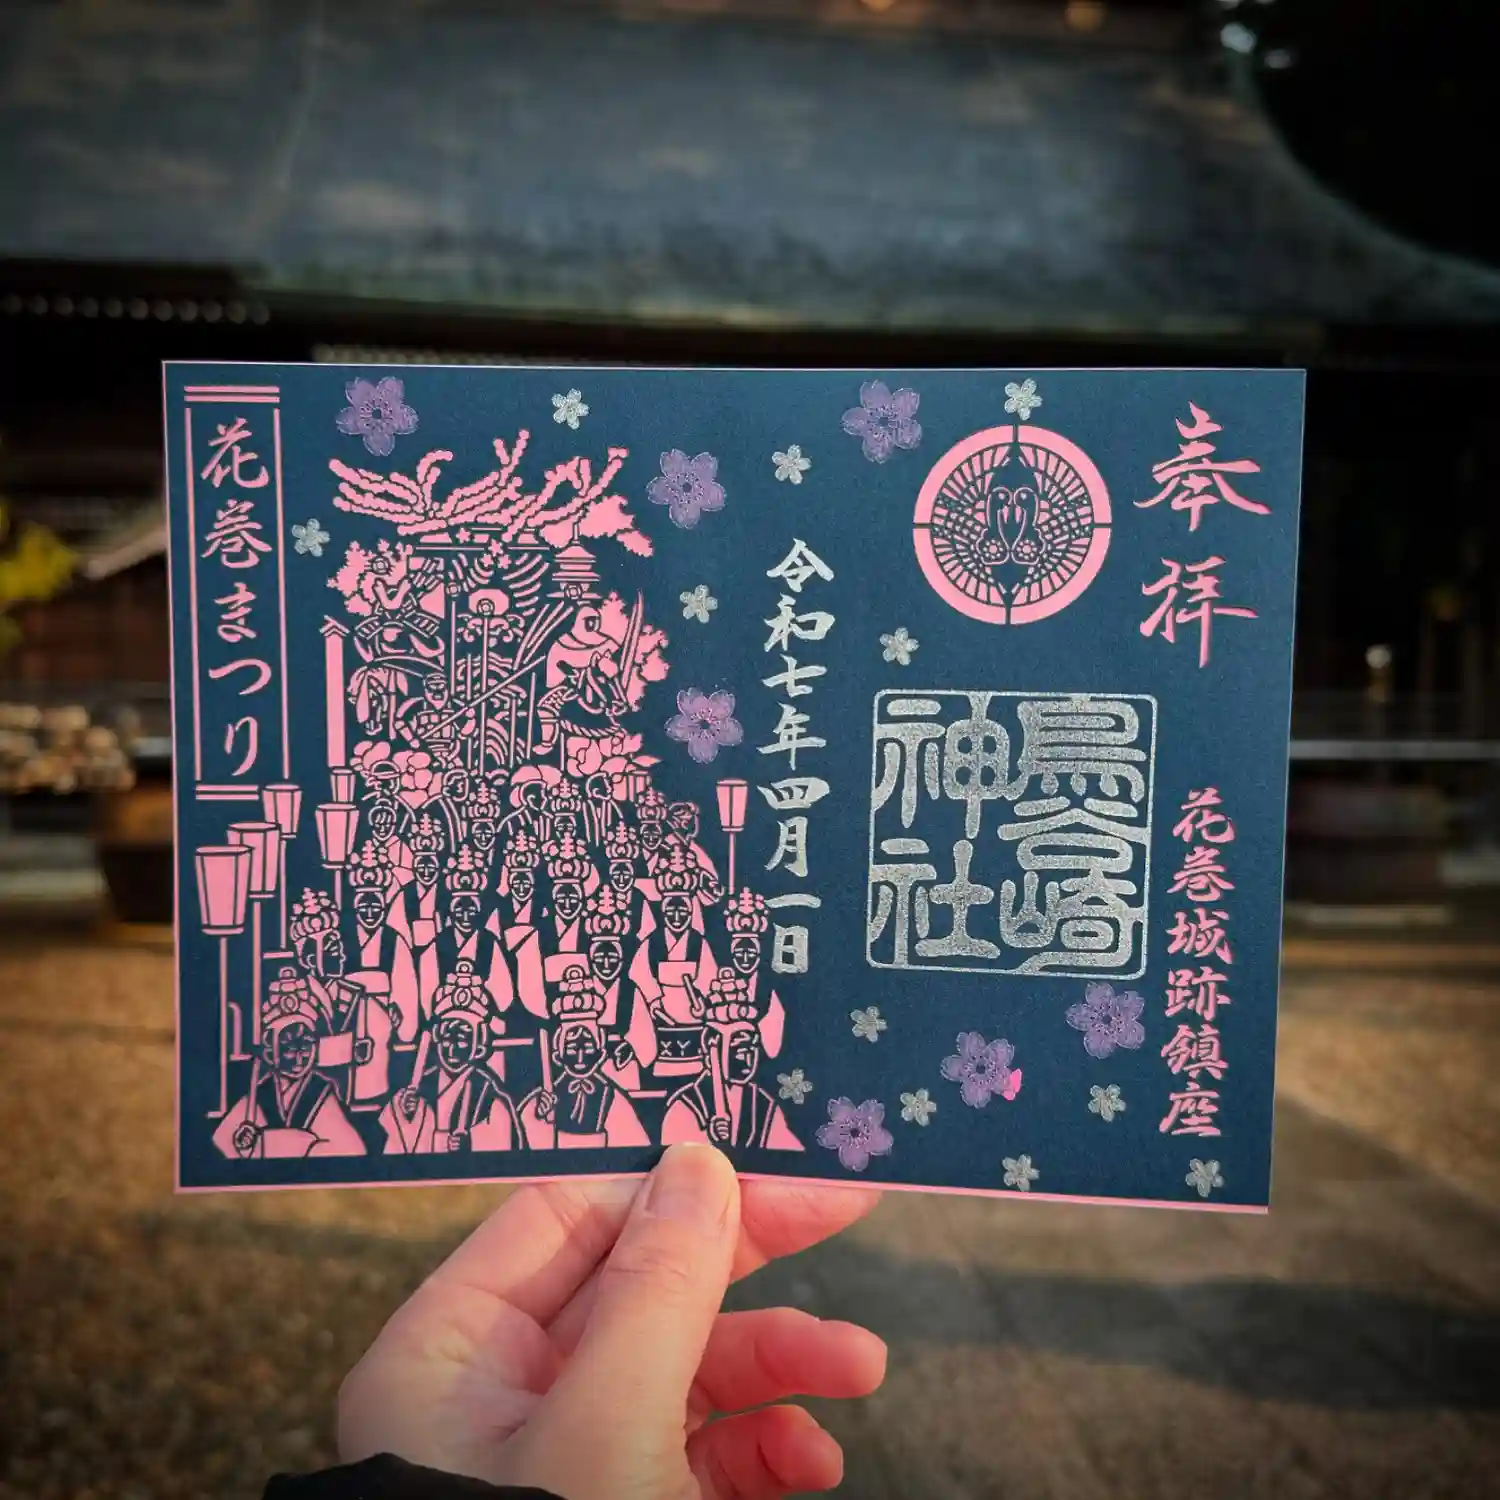 奉拝
花巻城跡鎮座
鳥谷崎
神社
令和七年四月一日
花巻まつり
XY